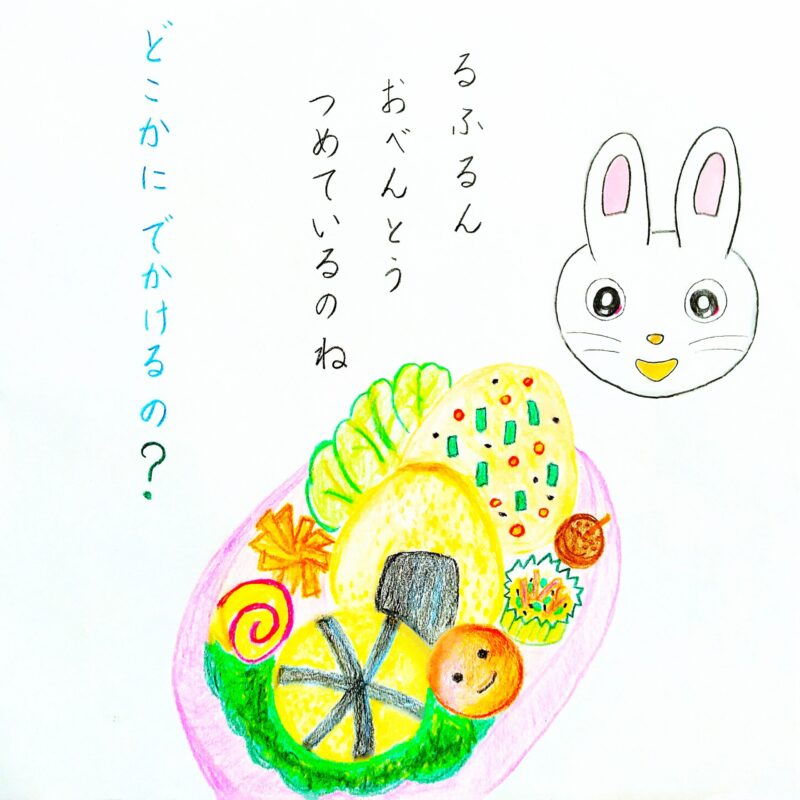 るふるん
おべんとう
つめているのね
どこかにでかけるの?